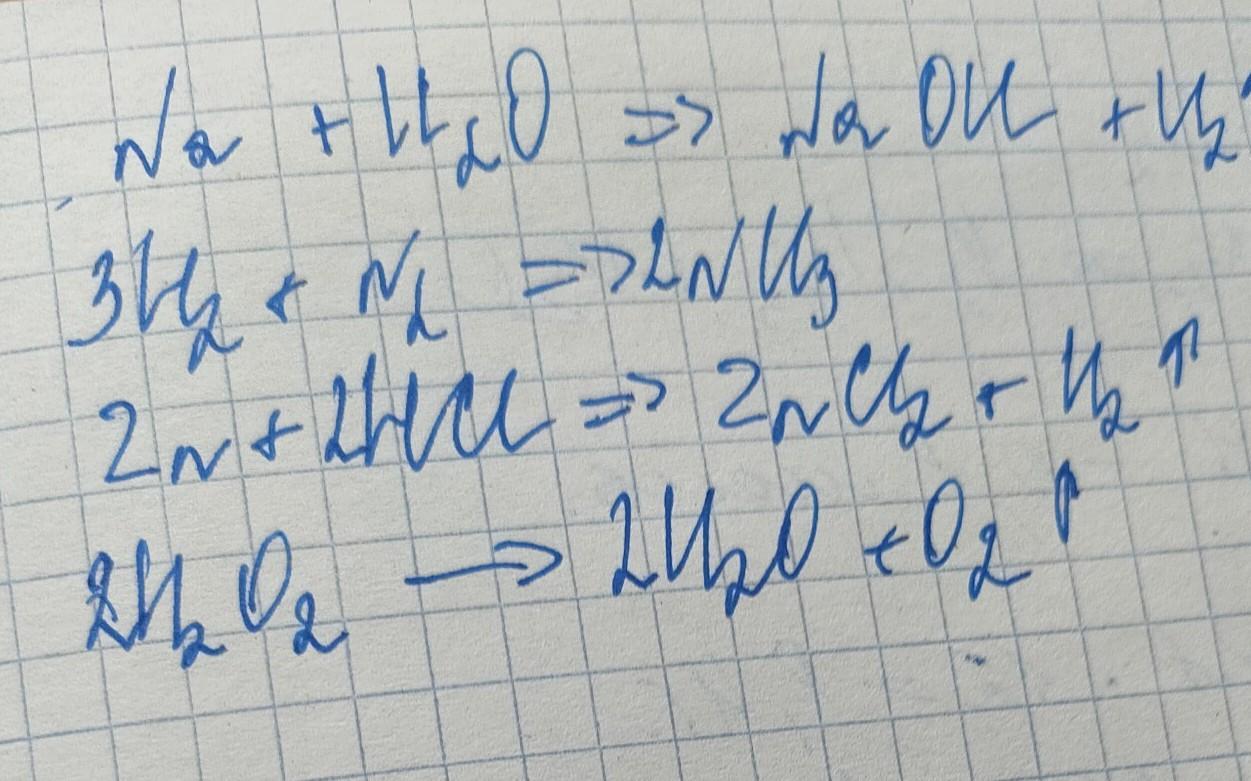 Na + H₂O => NaOH + H₂↑
3H₂ + N₂ => 2NH₃
Zn + 2HCl => ZnCl₂ + H₂ ↑
2H₂O₂ → 2H₂O + O₂ ↑